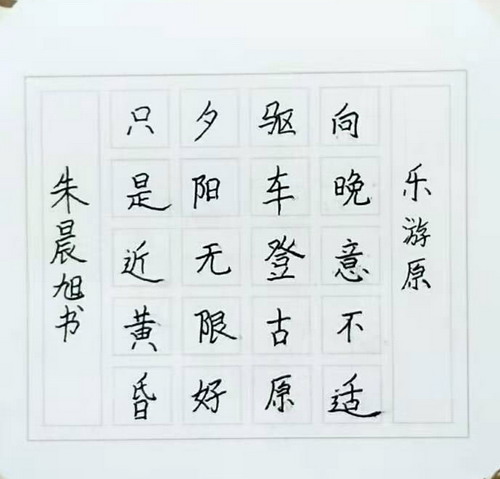 乐游原
向晚意不适
驱车登古原
夕阳无限好
只是近黄昏
朱晨旭书